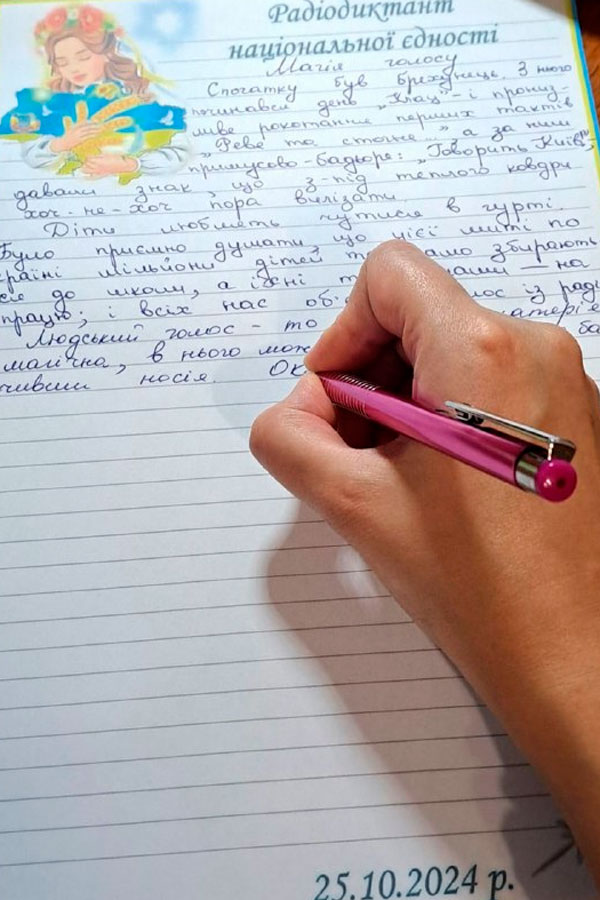 Радіодиктант
національної єдності
Магія голосу
Спочатку був Брехунець. З нього
починався день. „Клац" – і прониз-
ливе рокотання перших тактів
„Реве та стогне", а за ним
примусово-бадьоре: „Говорить Київ",
давали знак, що з-під теплого ковдри
хоч-не-хоч пора вилізати.
Діти люблять чутися в гурті.
Було приємно думати, що цієї миті по
країні мільйони дітей так само збирають
ся до школи, а їхні мами – на
працю; і всіх нас голос із
Людський голос – то
магічна, в нього
чивши носія. Ок
25.10.2024 р.